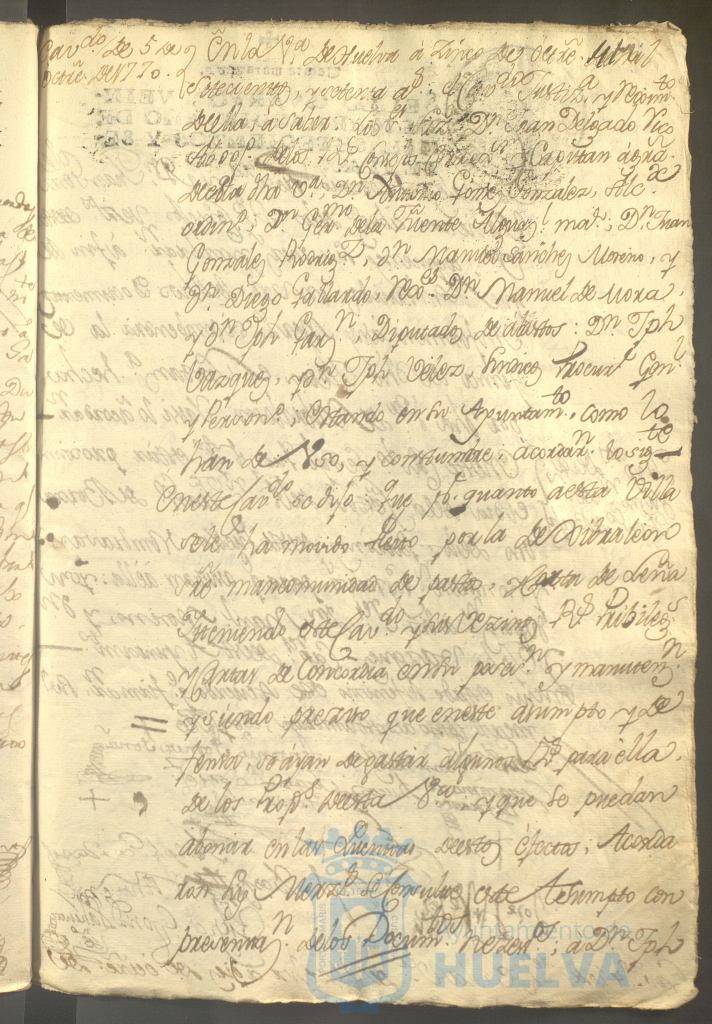 Cav.do de 5 de
Octre. de 1770.
En la V.a de Huelva á Zinco de Octre. Mil
Setecientos, y setenta a.s
della, á saber, Dn. Juan Delgado
de los R.s Consejos Correx.or Capitan á
de esta dha V.a, Dn. Antonio Gomez Gonzalez, Alc.de
ordin.o, Dn. Ger.mo de la Fuente Alguaz.l ma.r, Dn. Juan
Gonzalez Rodrig.z, Dn. Manuel Sanchez Moreno, y
Dn. Diego Gallardo, Rex.es Dn. Manuel de Mora,
y Dn. Jph Garz.n, Diputados de abastos: Dn. Jph
Vazquez, y Dn. Jph Velez, Sindicos Procur.l Gen.l
y Person.o, estando en su Ayuntam.to, como lo
han de Uso, y constumbre, acordar.n lo sig.te
En este Cav.do se dijo: que p.r quanto a esta Villa
se le ha movido Pleito por la de Gibraleon
sre mancomunidad de pastos, Corta de Leña
Y teniendo este Cav.do y sus Vezinos R.s Pribileg.s
y Cartas de Concordia en su poses.n y manuten.n
y siendo preziso que en este asumpto y de
fensa, se aian de gastar algunos para ella,
de los Prop.s de esta V.a y que se puedan
abonar en las Quentas de estos efectos; Acorda
ron sus Merz.s se consulte este Asumpto con
presenta.n de los Docum.tos nezes.os, a Dn. Jph
Ayuntamiento de
HUELVA